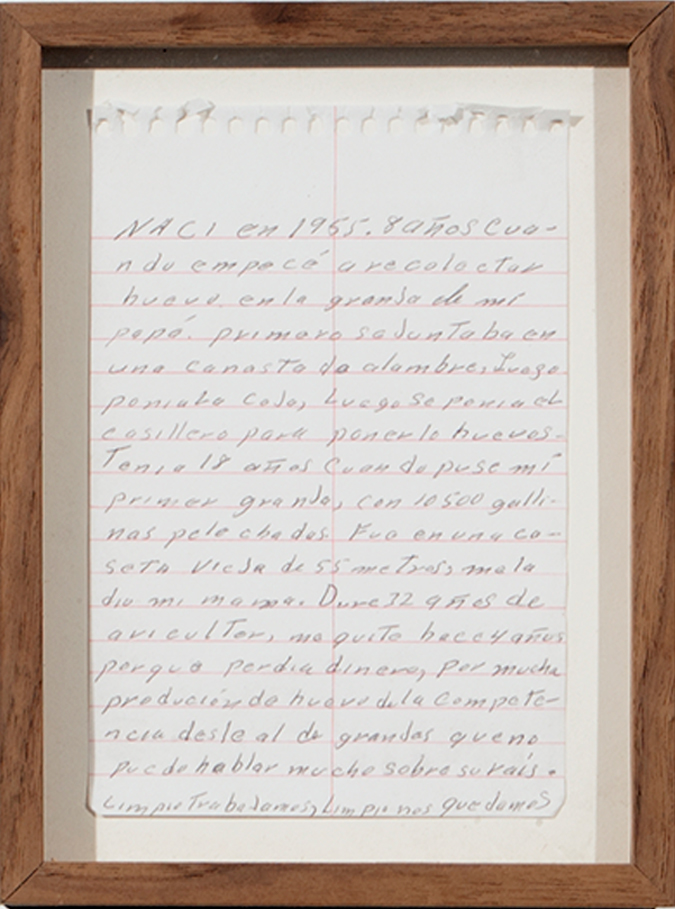 NACI en 1965. 8 años cua-
ndo empecé a recolectar
huevo en la granja de mi
papá. primero sejuntaba en
una canasta de alambre, Luego
ponia la caja, Luego se ponia el
casillero para poner lo huevos.
Tenia 18 años cuando puse mi
primer granja, con 10500 galli-
nas pelechadas. Fue en una ca-
seta vieja de 55 metros, me la
dio mi mama. Dure 32 años de
avicultor, me quite hace 4 años
porque perdia dinero, por mucha
produción de huevo de la compete-
ncia desleal de granjas que no
puedo hablar mucho sobre su raís.
Limpio Trabajamos, Limpio nos quedamos